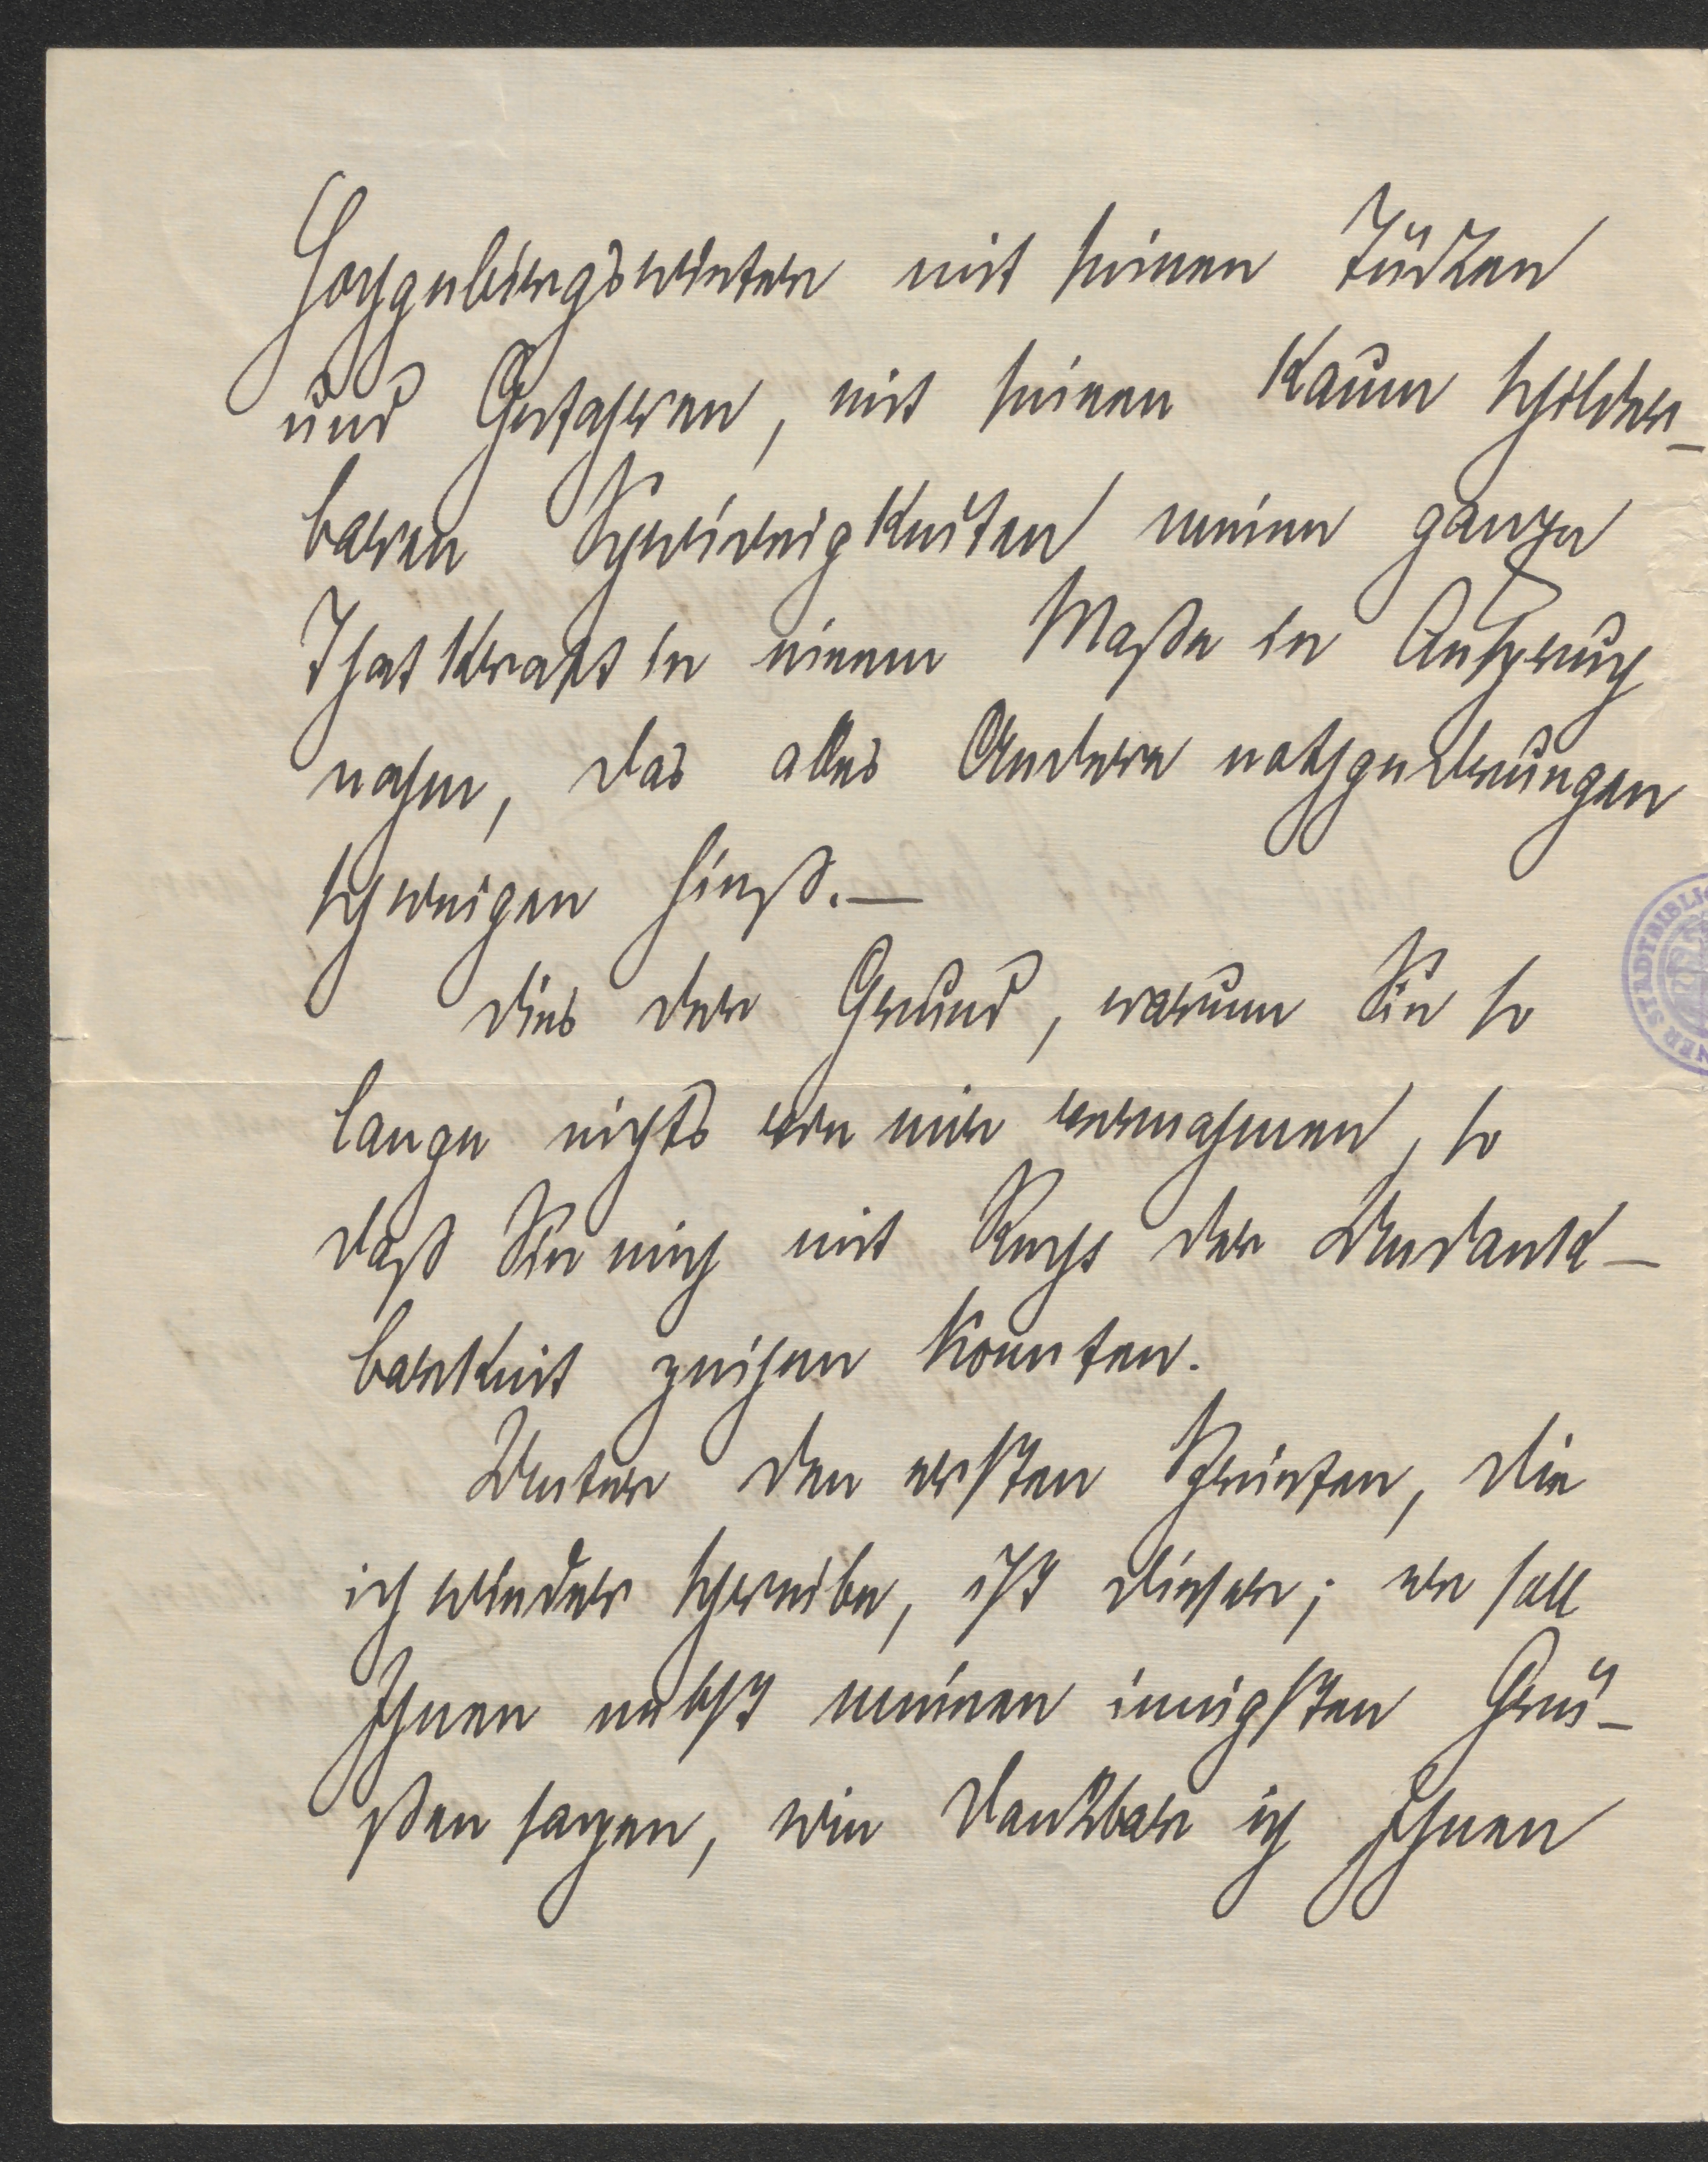 Hochgebirgswinter mit seinen Tücken
und Gefahren, mit seinen kaum schilder-
baren Schwierigkeiten meine ganze
Thatkraft in einem Maße in Anspruch
nahm, das alles Andere nothgedrungen
schweigen hieß.—
Dies der Grund, warum Sie so
lange nichts von mir vernahmen, so
daß Sie mich mit Recht der Undank-
barkeit zeihen konnten.
Unter den ersten Briefen, die
ich wieder schreibe, ist dieser; er soll
Ihnen nebst meinen innigsten Grü-
ßen sagen, wie dankbar ich Ihnen
NER STADTBIBLIO